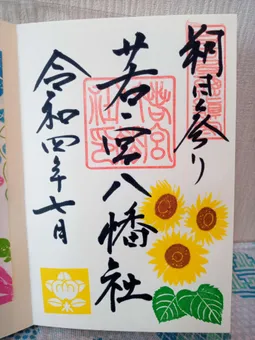 朔日参り
若宮八幡社
令和四年七月